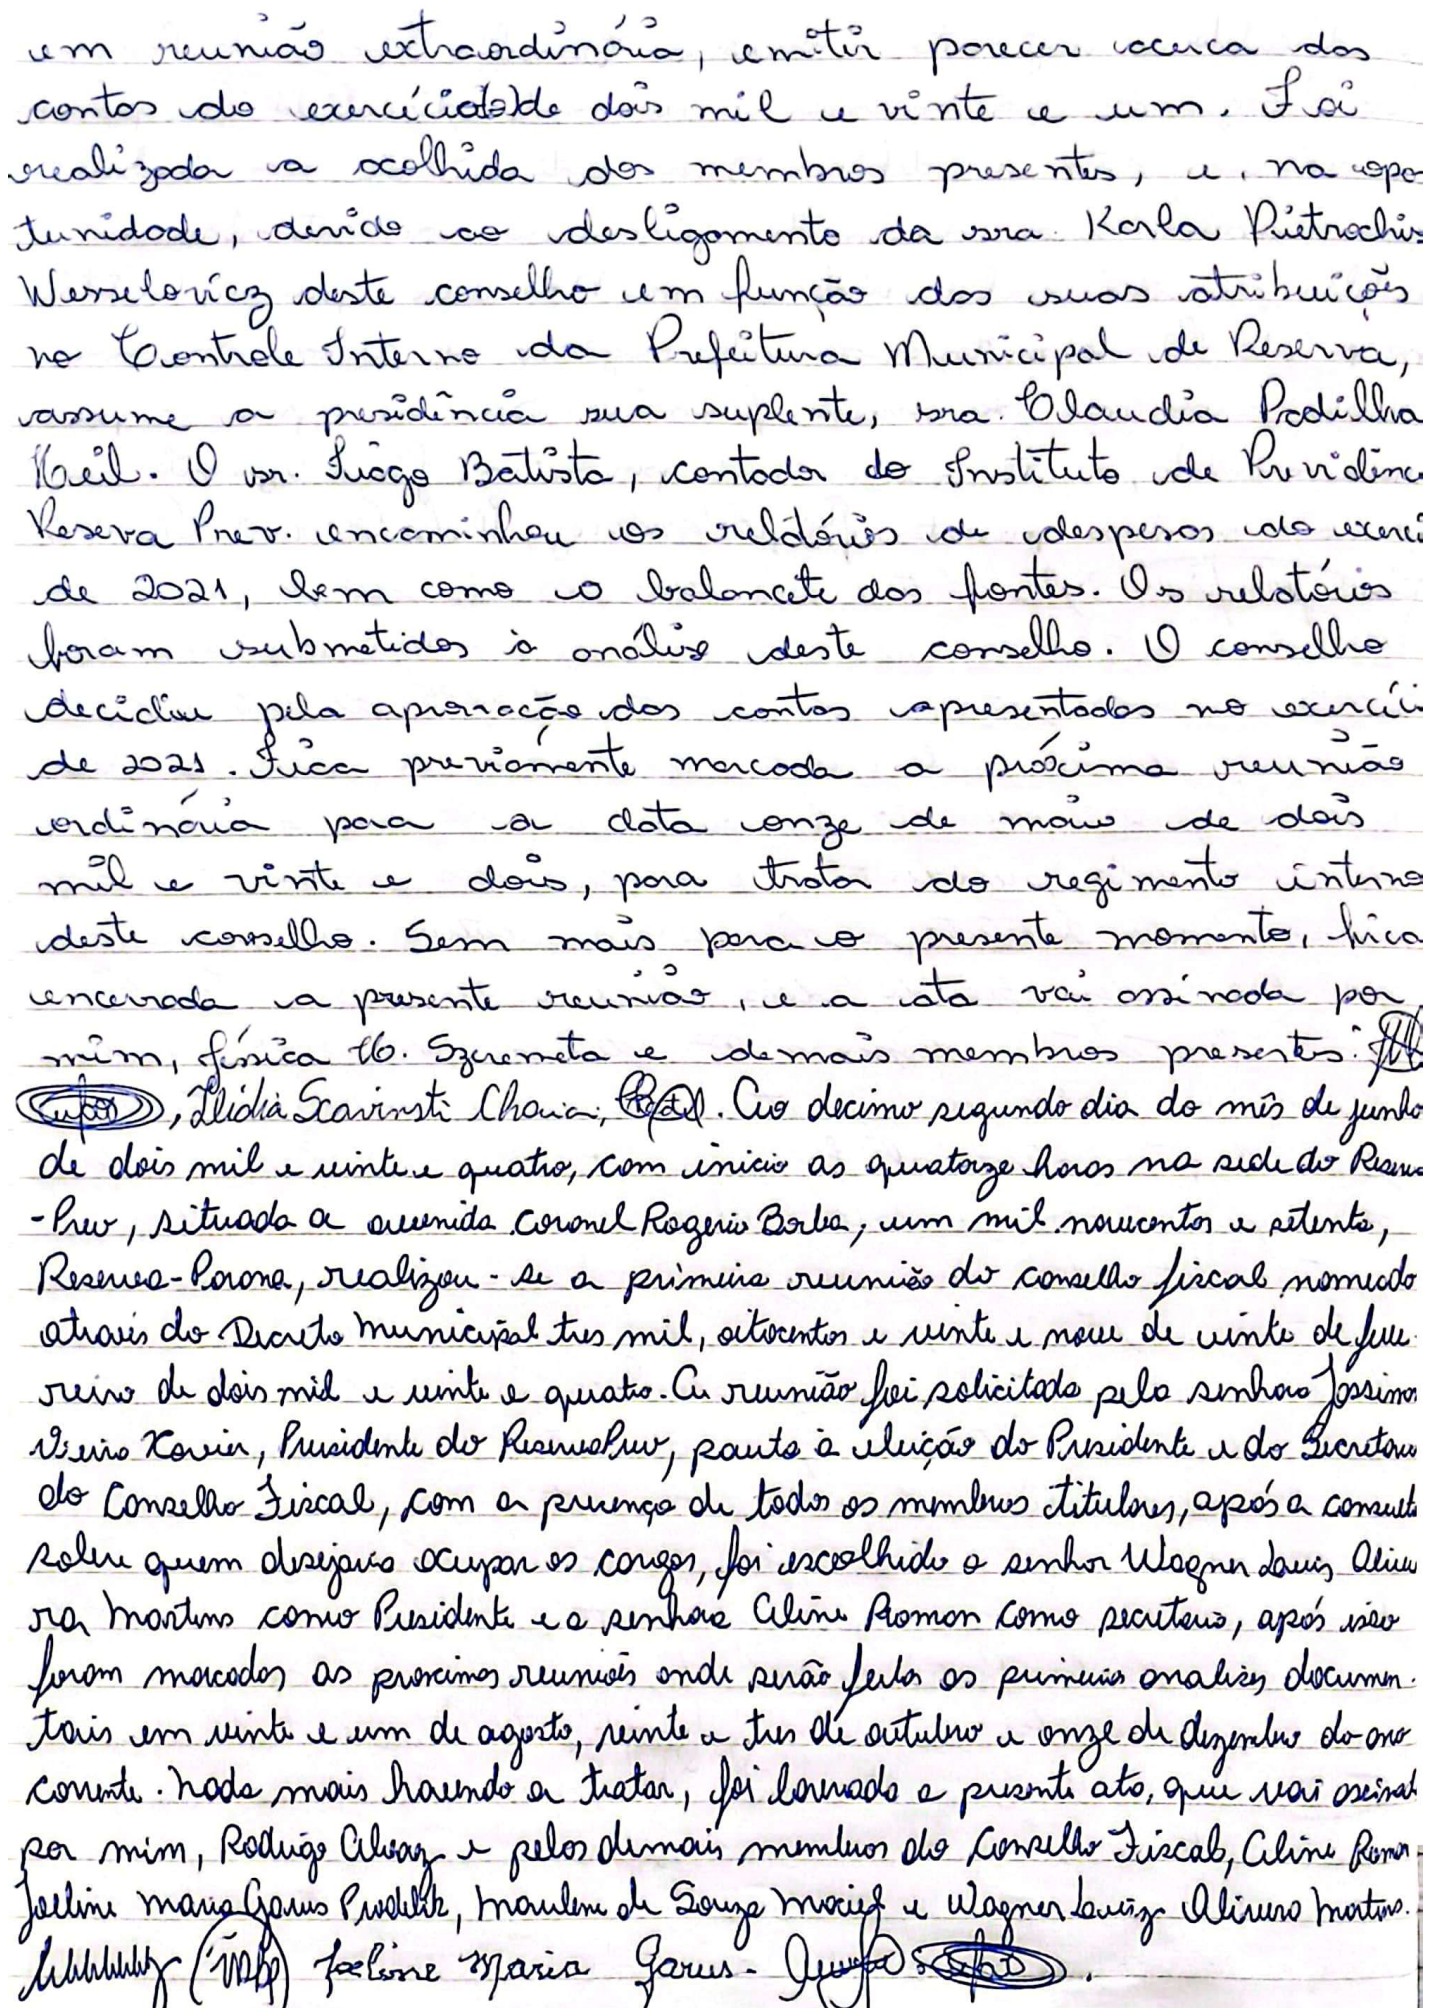 em reunião extraordinária, emitir parecer acerca das
contas do exercício de dois mil e vinte e um. Foi
realizada a acolhida dos membros presentes, e, na opor
tunidade, devido ao desligamento da sra. Karla Pietrochis
Wesselovicz deste conselho em função das suas atribuições
no Controle Interno da Prefeitura Municipal de Reserva,
assume a presidência sua suplente, sra. Claudia Padilha
Keil. O sr. Tiago Batista, contador do Instituto de Previdênc
Reserva Prev. encaminhou os relatórios de despesas do exercí
de 2021, bem como o balancete das fontes. Os relatórios
foram submetidos à análise deste conselho. O conselho
decidiu pela aprovação das contas apresentadas no exercíci
de 2021. Fica previamente marcada a próxima reunião
ordinária para a data onze de maio de dois
mil e vinte e dois, para tratar do regimento interno
deste conselho. Sem mais para o presente momento, fica
encerrada a presente reunião, e a ata vai assinada por
mim, Jéssica H. Szeremeta e demais membros presentes.
, Ilidia Scavinski Chaia, . Ao decimo segundo dia do mês de junho
de dois mil e vinte e quatro, com inicio as quatorze horas na sede do Reserva
-Prev, situada a avenida Coronel Rogerio Borba, um mil novecentos e setenta,
Reserva-Parana, realizou-se a primeira reunião do conselho fiscal nomeado
através do Decreto Municipal tres mil, oitocentos e vinte e nove de vinte de feve-
reiro de dois mil e vinte e quatro. A reunião foi solicitada pela senhora Jossima
Vieira Xavier, Presidente do ReservaPrev, pauta à eleição do Presidente e do Secretario
do Conselho Fiscal, com a presença de todos os membros titulares, após a consulta
sobre quem desejava ocupar os cargos, foi escolhido o senhor Wagner Luiz Olivei
ra Martins como Presidente e a senhora Celine Roman como secretaria, após isso
foram marcadas as proximas reuniões onde serão feitas as primeiras analises documen-
tais em vinte e um de agosto, vinte e tres de outubro e onze de dezembro do ano
corrente. Nada mais havendo a tratar, foi lavrada a presente ata, que vai assinad
por mim, Rodrigo Alvaz e pelos demais membros do Conselho Fiscal, Celine Roman
Joeline Maria Garus Prodelik, Marilene de Souza Maciel e Wagner Luiz Oliveira Martins.
Joeline Maria Garus-